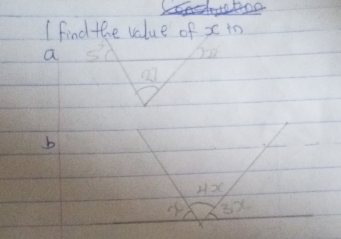 Construction
1 find the value of x in
a
b
4x
x 3x